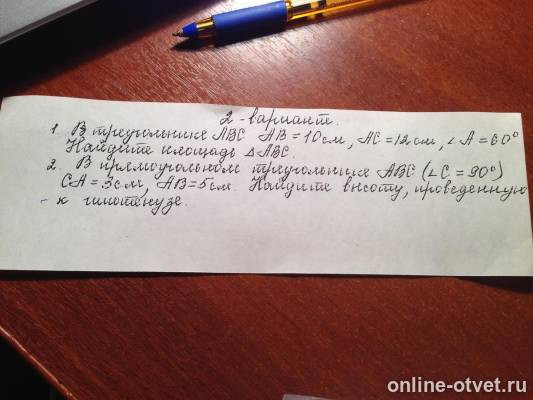 2 - вариант.
1. В треугольнике ABC AB = 10 см, AC = 12 см, ∠A = 60°
Найдите площадь △ABC.
2. В прямоугольном треугольнике ABC (∠C = 90°)
CA = 3 см, AB = 5 см. Найдите высоту, проведенную
к гипотенузе.
online-otvet.ru